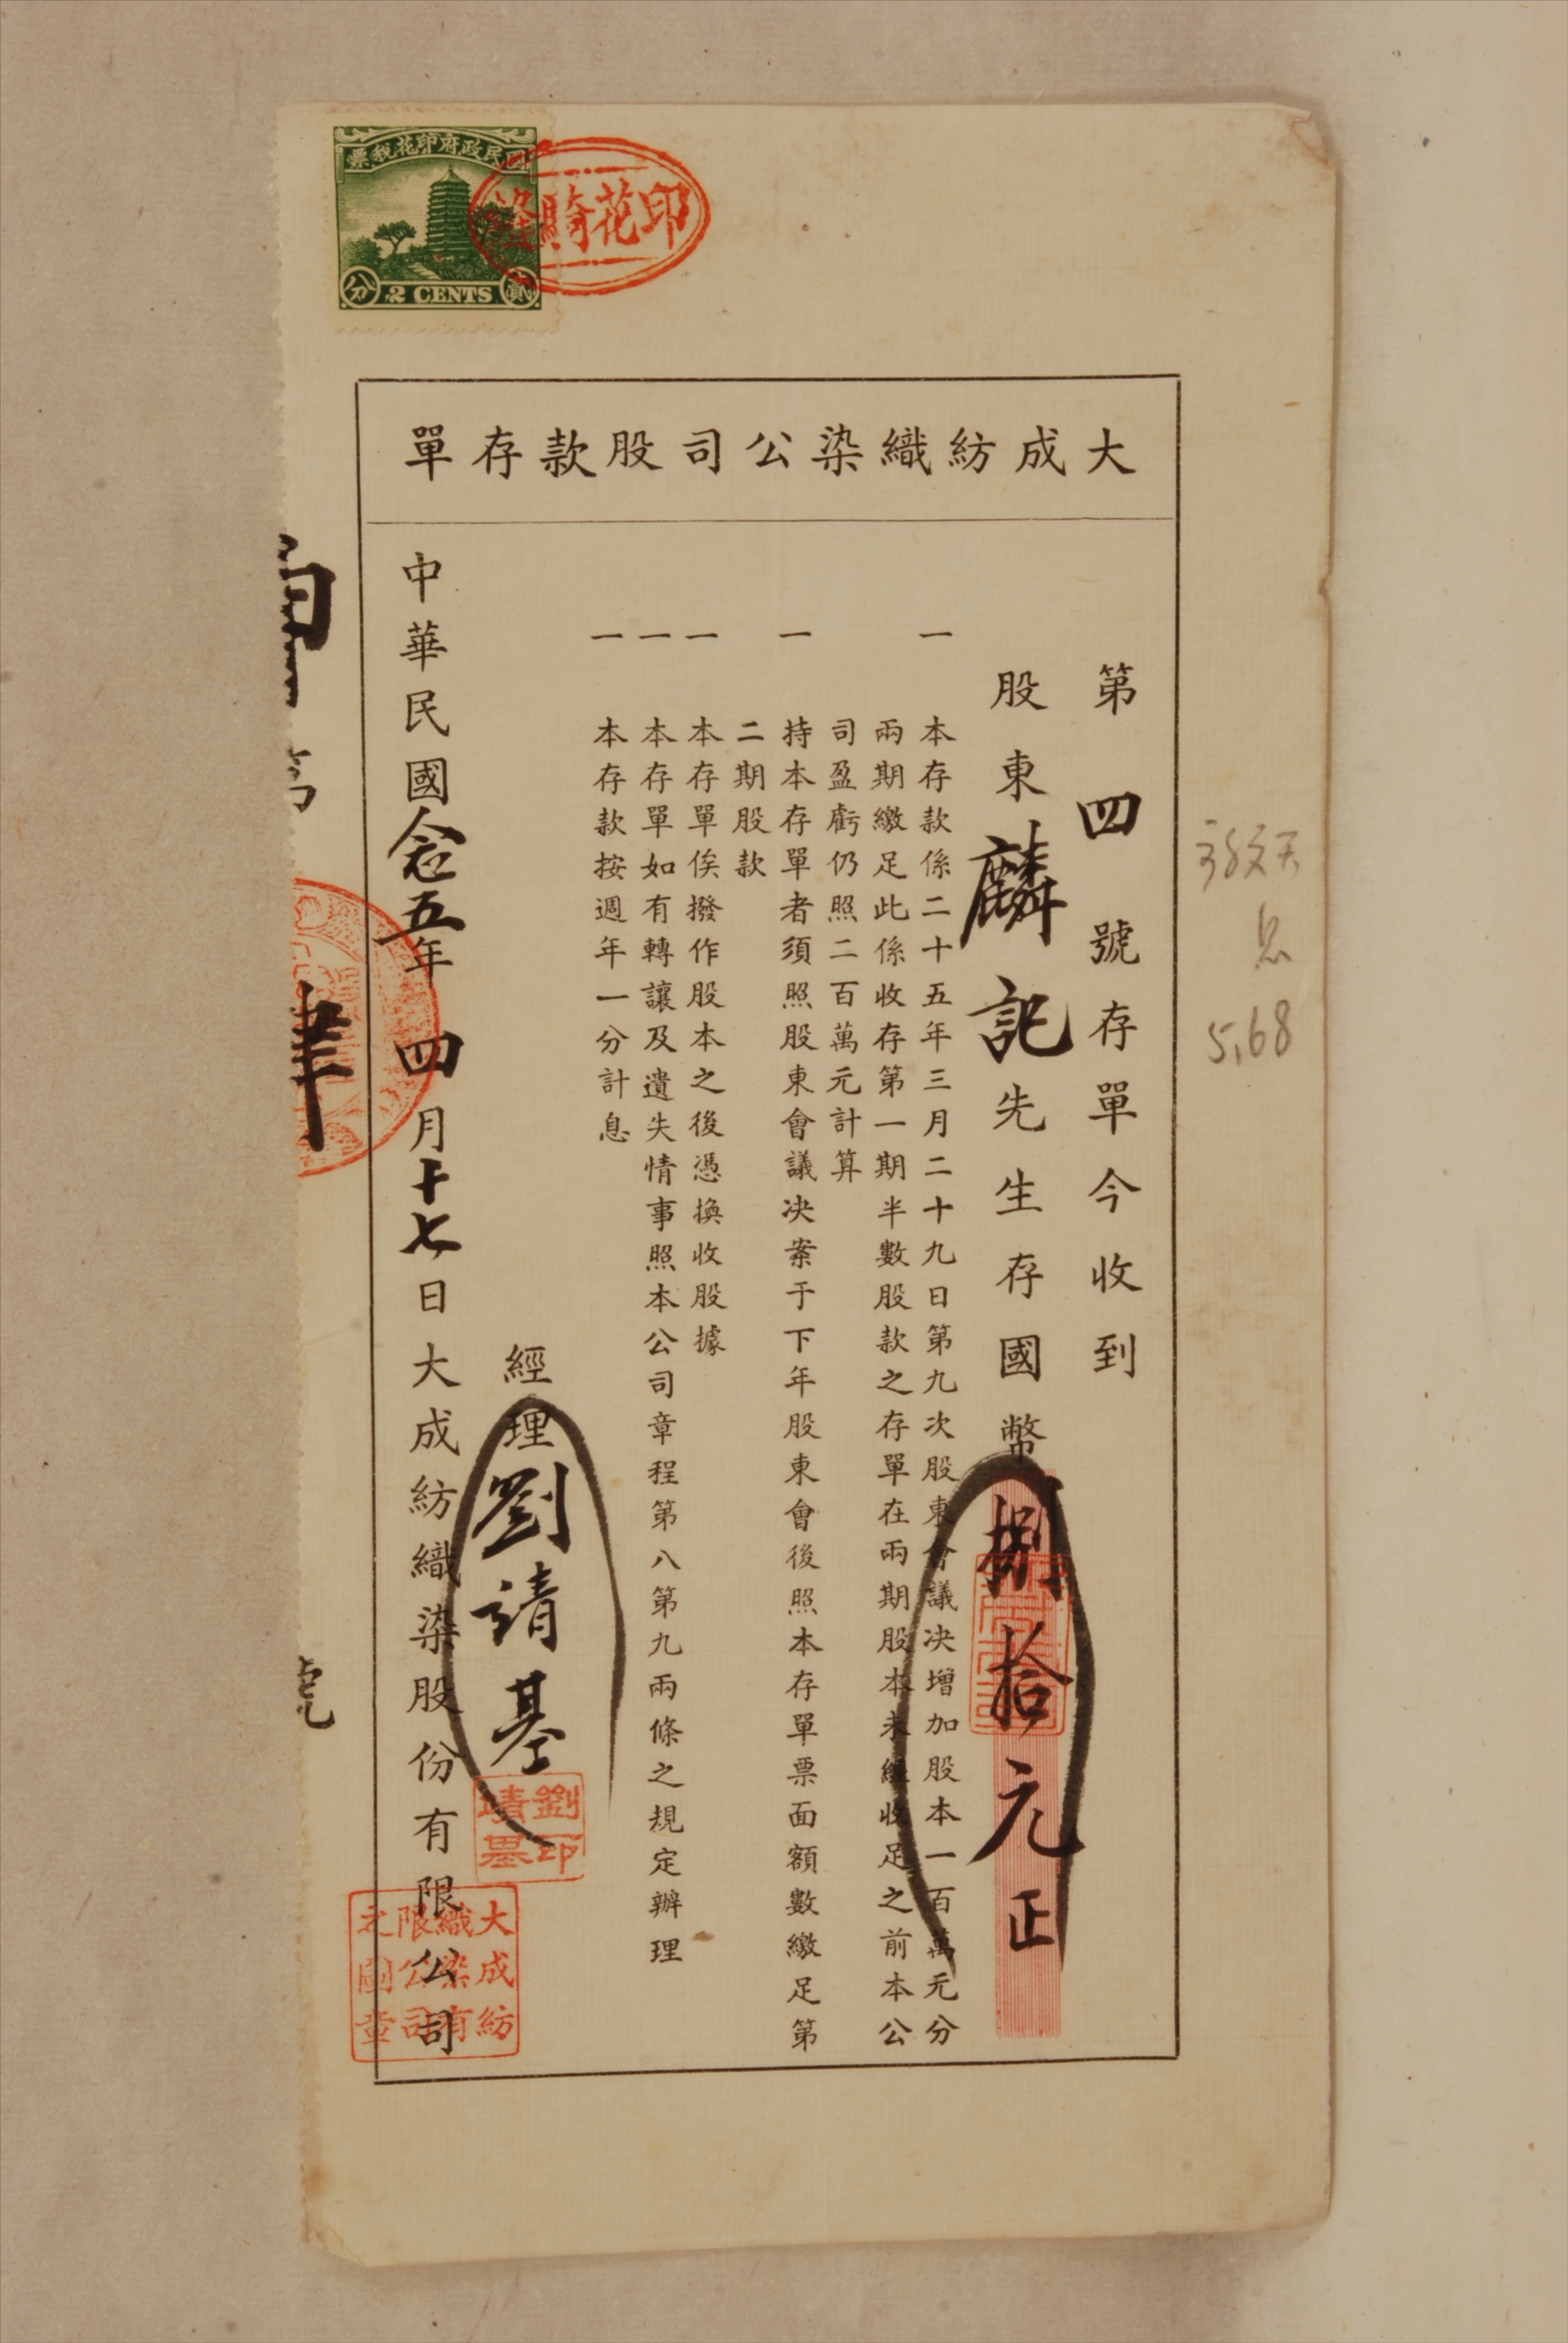 國民政府印花稅票
貳分
2 CENTS
印花騎縫
大成紡織染公司股款存單
第四號存單今收到
股東麟記先生存國幣捌拾元正
一 本存款係二十五年三月二十九日第九次股東會議決增加股本一百萬元分
兩期繳足此係收存第一期半數股款之存單在兩期股本未經收足之前本公
司盈虧仍照二百萬元計算
一 持本存單者須照股東會議決案于下年股東會後照本存單票面額數繳足第
二期股款
一 本存單俟撥作股本之後憑換收股據
一 本存單如有轉讓及遺失情事照本公司章程第八第九兩條之規定辦理
一 本存款按週年一分計息
經理劉靖基
劉靖基印
中華民國念五年四月十七日大成紡織染股份有限公司
大成紡織染有限公司之圖章
5,68